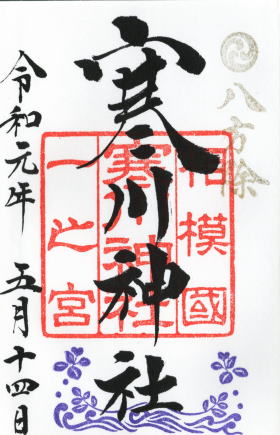 八方除
寒川神社
相模國
寒川神社
一之宮
令和元年 五月十四日